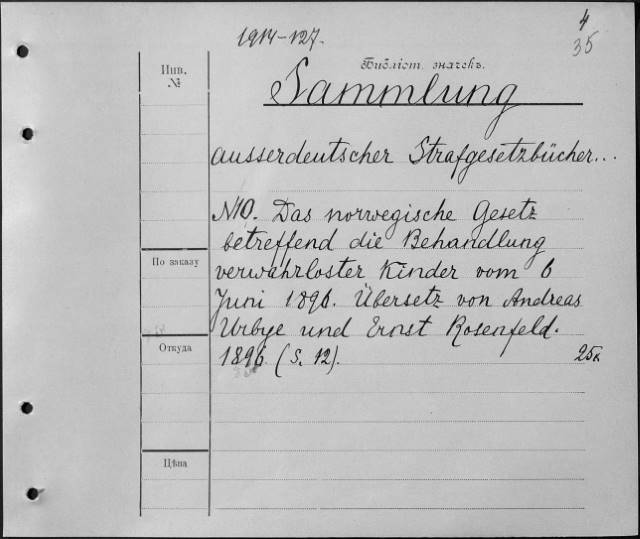 4
1914-127.
35
Инв.
№
Библіот. значекъ.
Sammlung
ausserdeutscher Strafgesetzbücher...
N10. Das norwegische Gesetz
betreffend die Behandlung
По заказу
verwahrloster Kinder vom 6
Juni 1896. Übersetz von Andreas
Urbye und Ernst Rosenfeld.
Откуда
1896 (S. 12).
25к
Цѣна